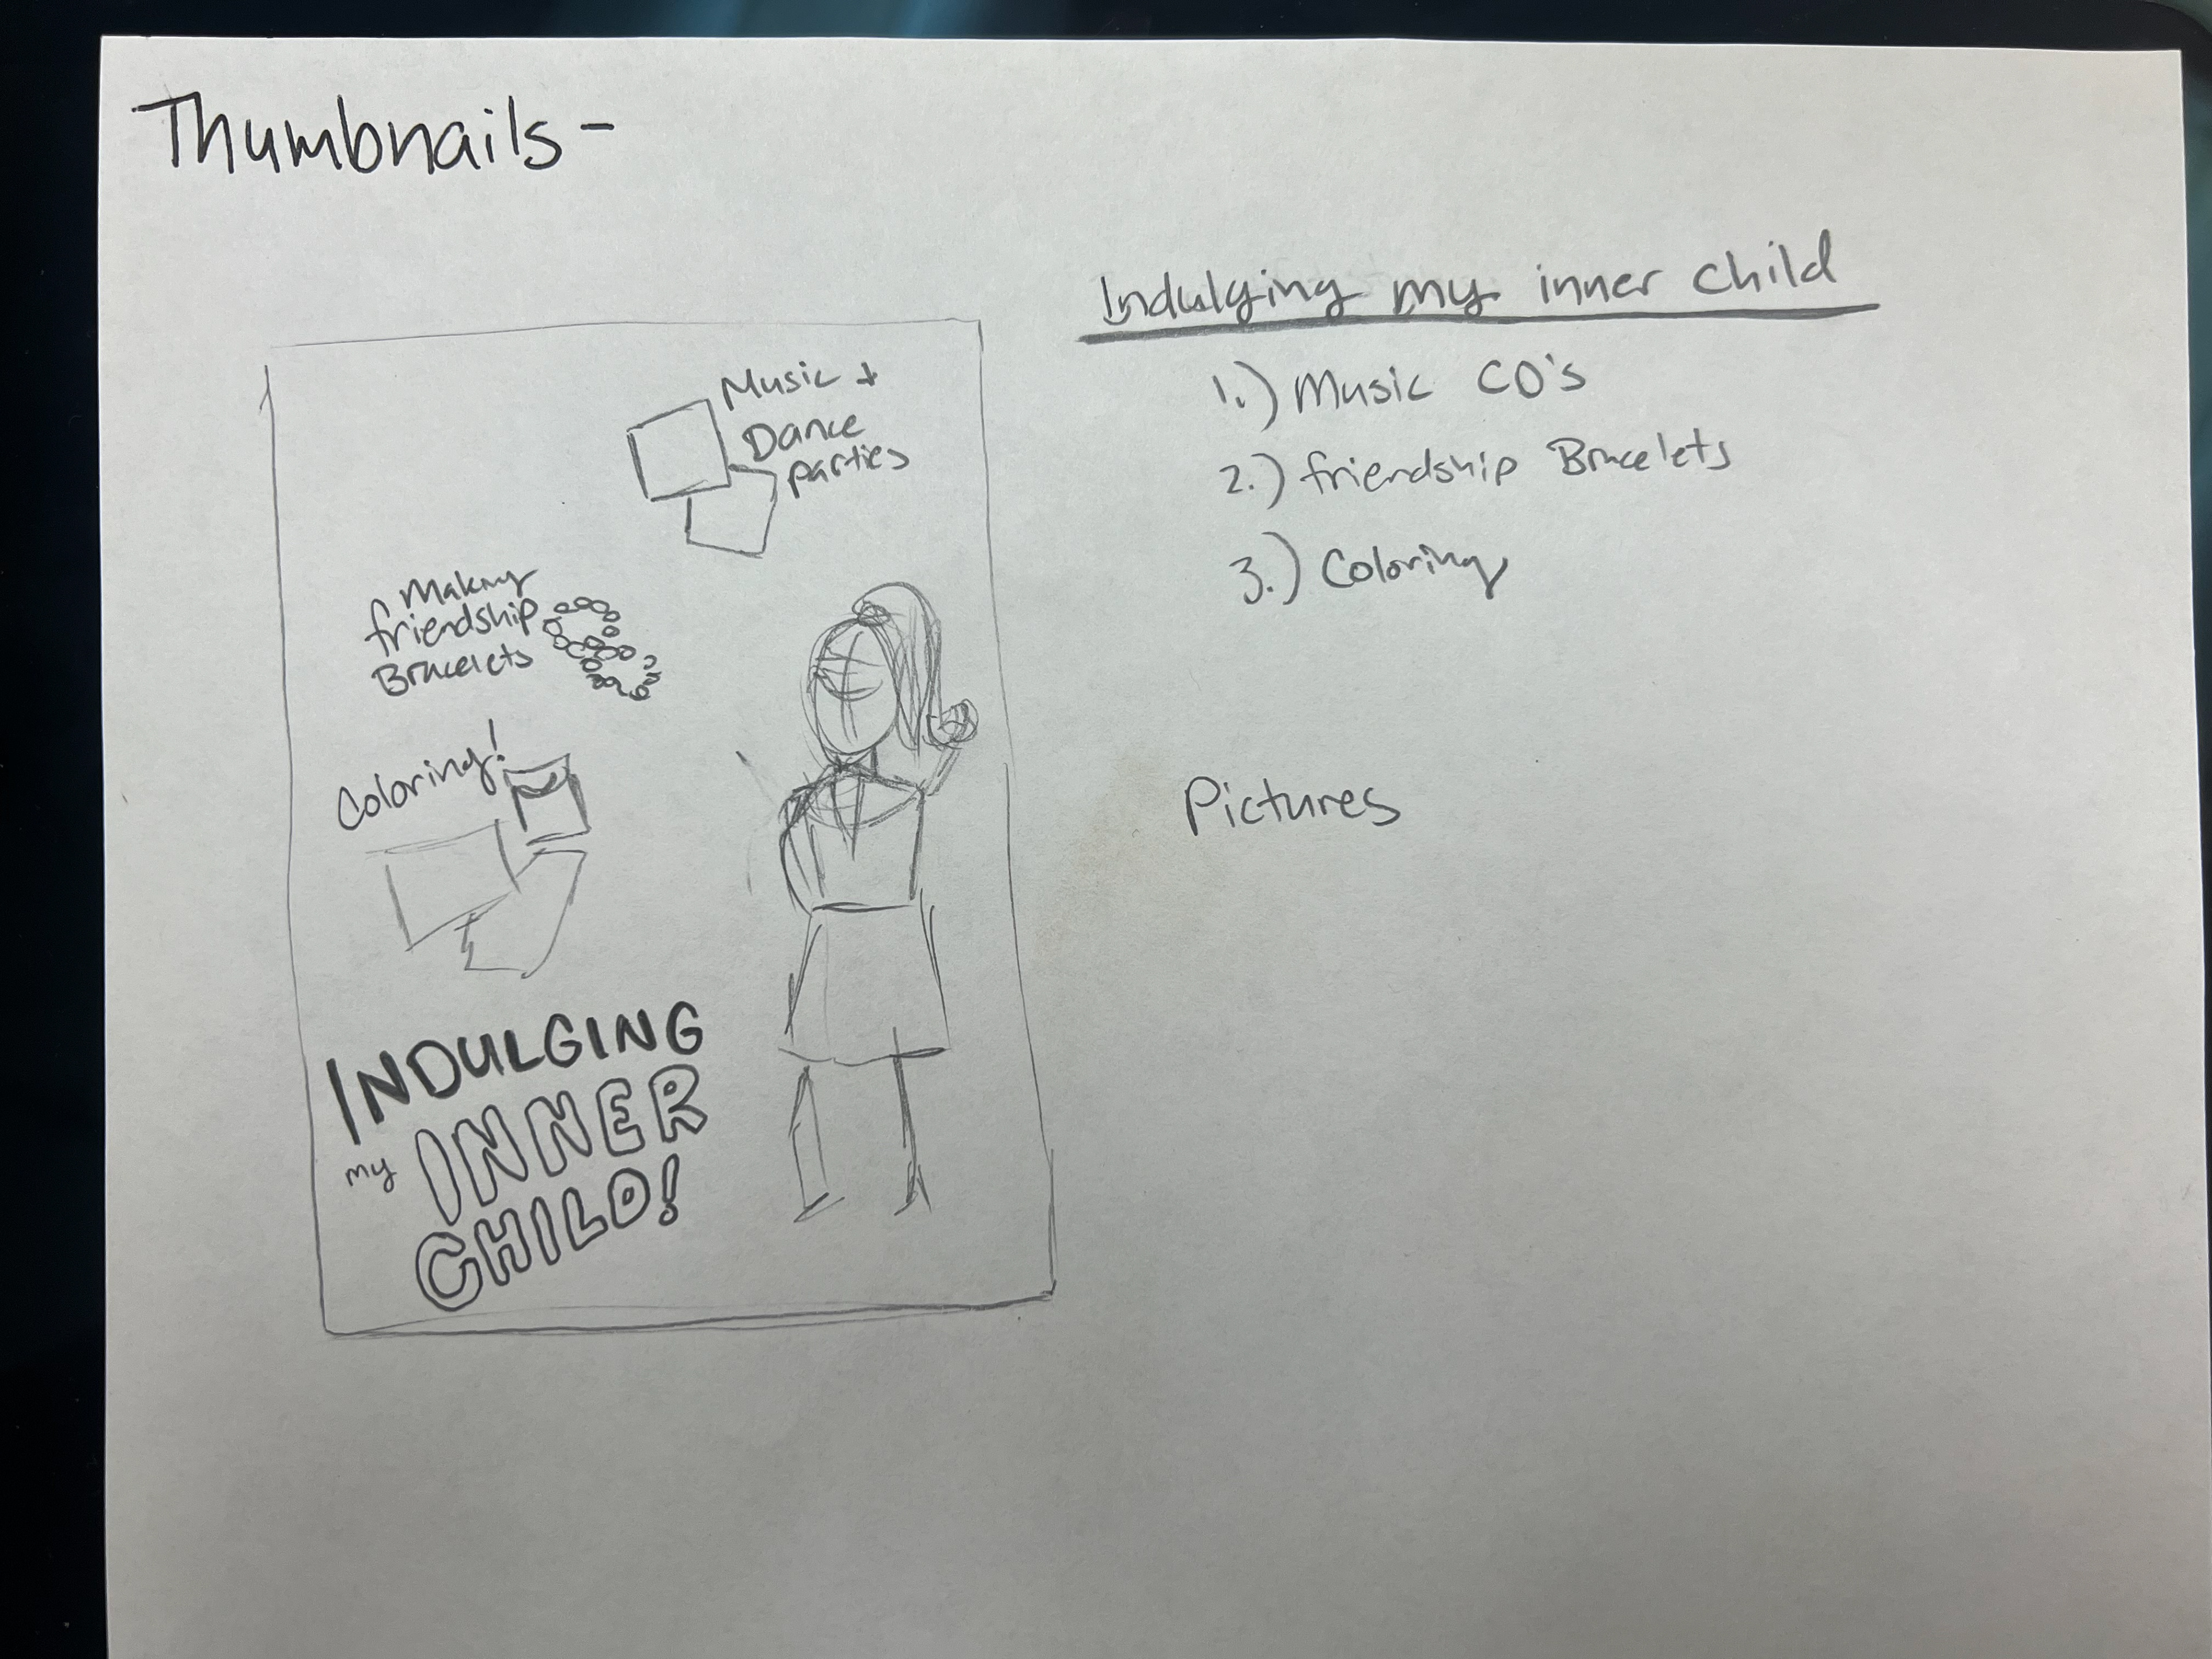 Thumbnails -
Music +
Dance
parties
Making
friendship
Bracelets
Coloring!
INDULGING
my INNER
CHILD!
Indulging my inner child
1.) Music CD's
2.) friendship Bracelets
3.) Coloring
Pictures